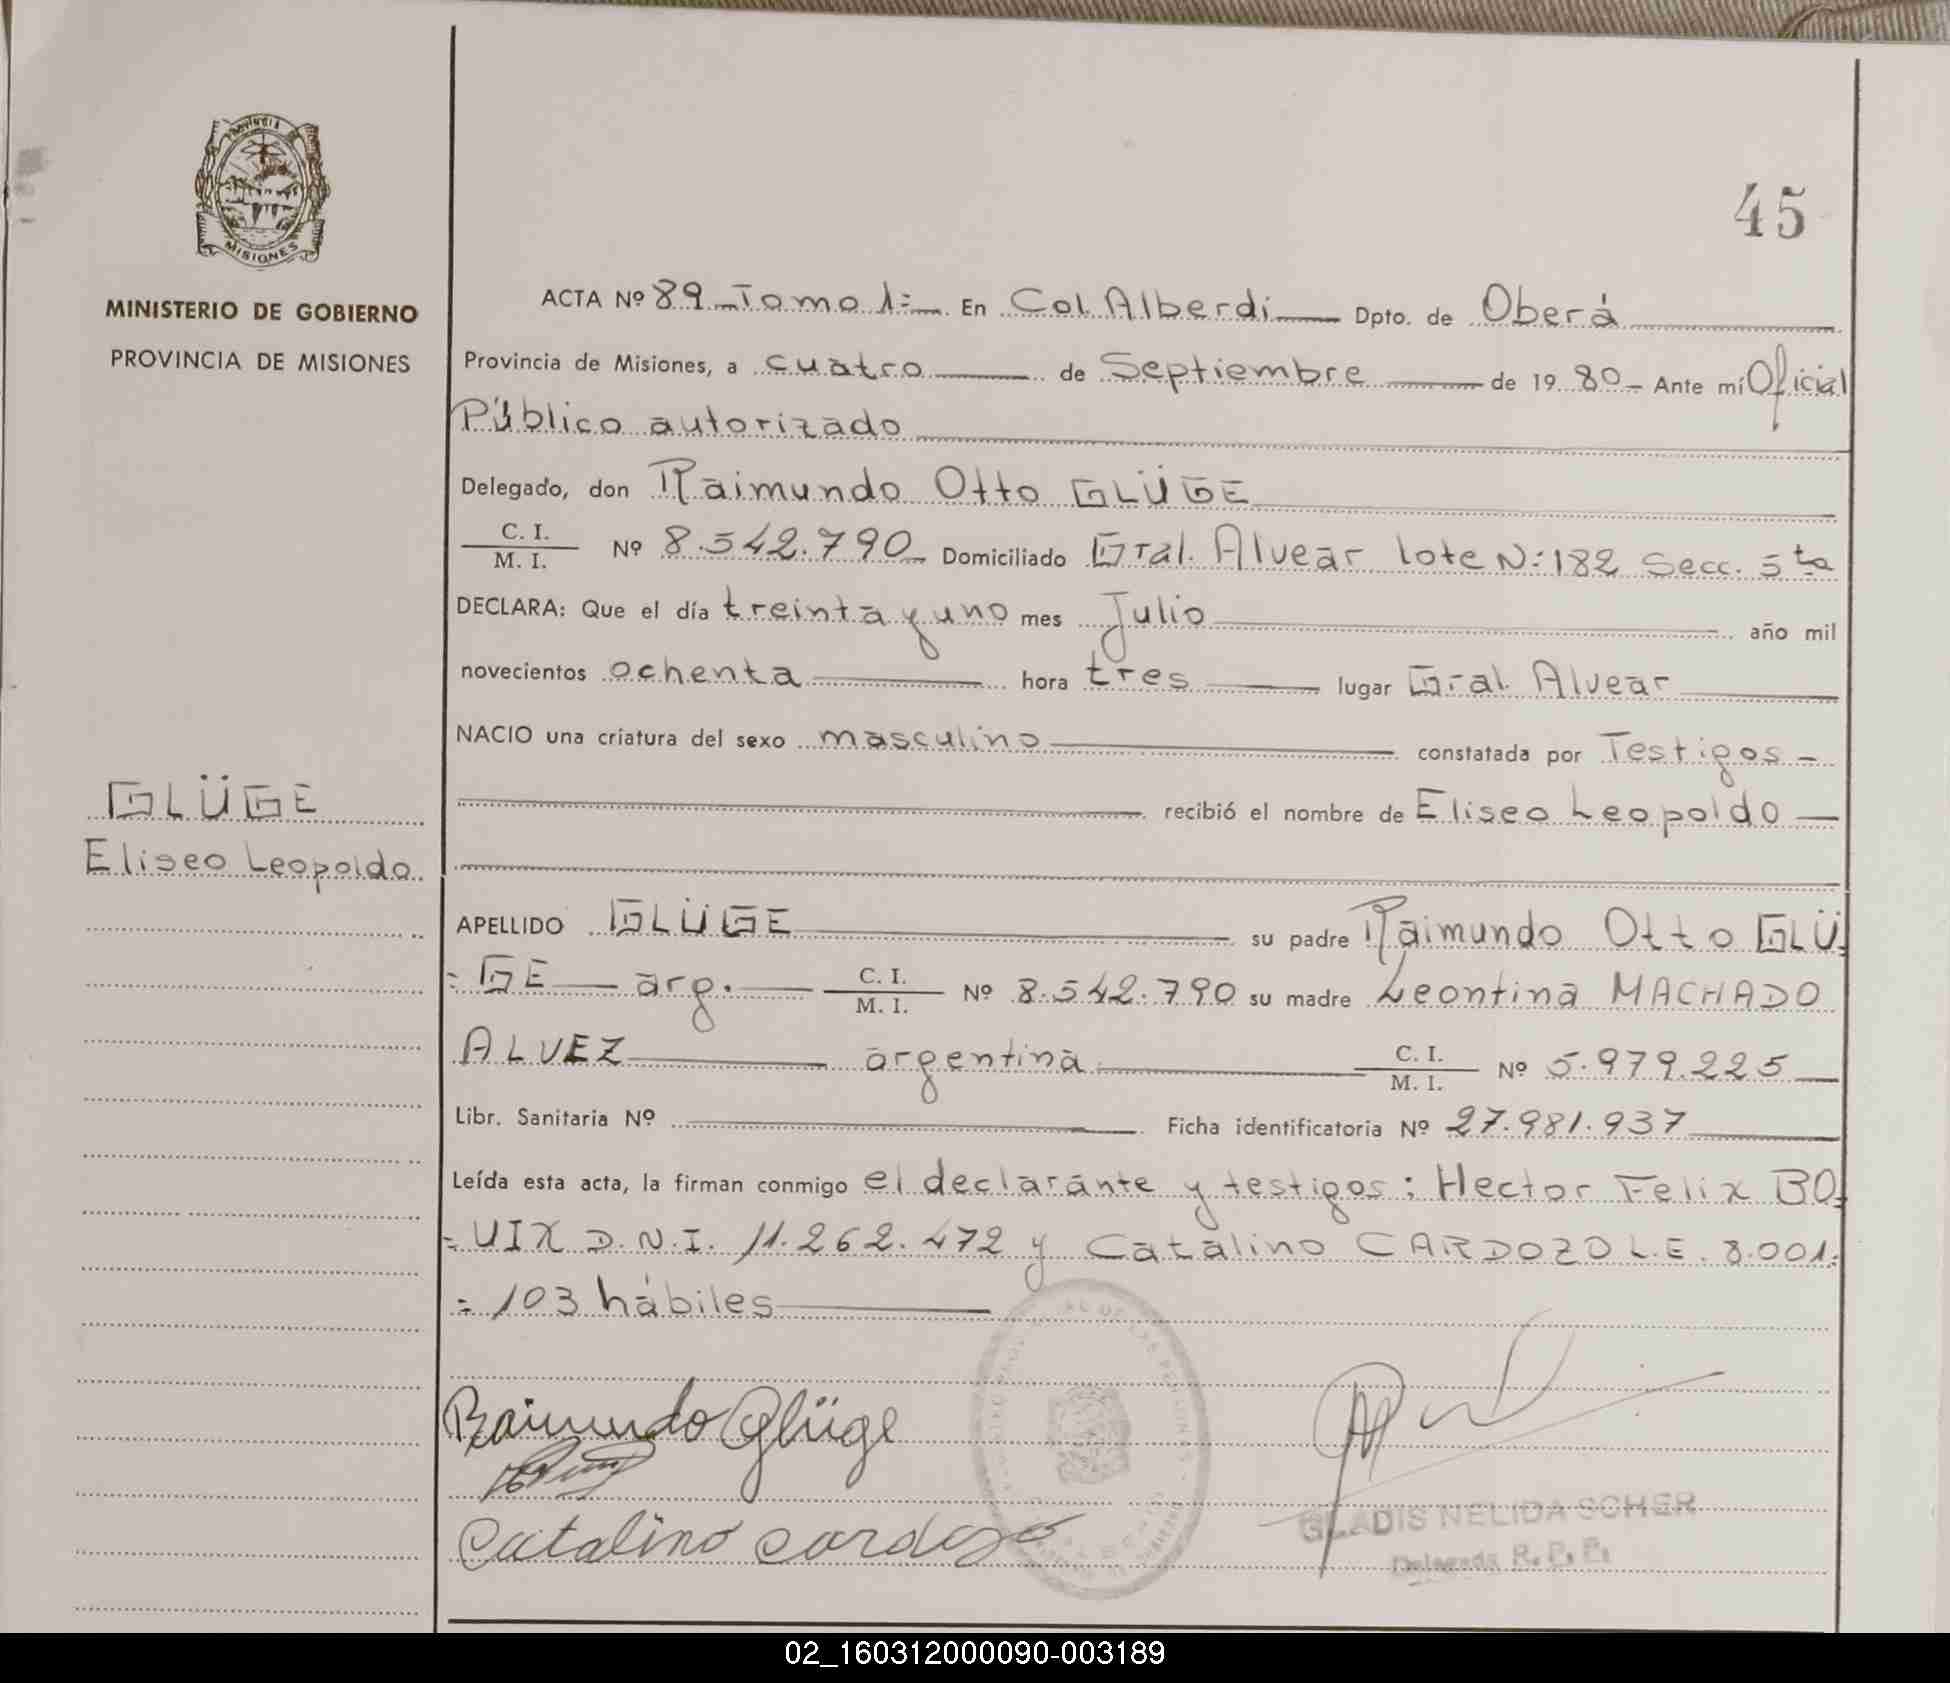 PROVINCIA DE
MISIONES
MINISTERIO DE GOBIERNO
PROVINCIA DE MISIONES
GLÜGE
Eliseo Leopoldo
45
ACTA Nº 89 Tomo 1: En Col Alberdi Dpto. de Oberá
Provincia de Misiones, a cuatro de Septiembre de 19 80 Ante mí Oficial
Público autorizado
Delegado, don Raimundo Otto GLÜGE
C. I.
M. I. Nº 8.542.790 Domiciliado Gral. Alvear lote N: 182 Secc. 5ta
DECLARA: Que el día treinta y uno mes Julio año mil
novecientos ochenta hora tres lugar Gral. Alvear
NACIO una criatura del sexo masculino constatada por Testigos
recibió el nombre de Eliseo Leopoldo
APELLIDO GLÜGE su padre Raimundo Otto GLÜ
=GE arg. C. I. M. I. Nº 8.542.790 su madre Leontina MACHADO
ALVEZ argentina C. I. M. I. Nº 5.979.225
Libr. Sanitaria Nº Ficha identificatoria Nº 27.981.937
Leída esta acta, la firman conmigo el declarante y testigos: Hector Felix BO
=UIX D.N.I. 11.262.472 y Catalino CARDOZO L.E. 8.001.
=103 hábiles
Raimundo Glüge
Catalino Cardozo
GLADIS NELIDA SCHER
Delegada R. P. P.
02_160312000090-003189